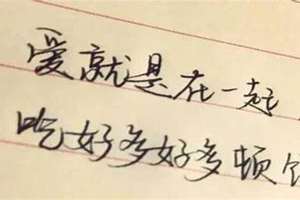 爱就是在一起
吃好多好多顿